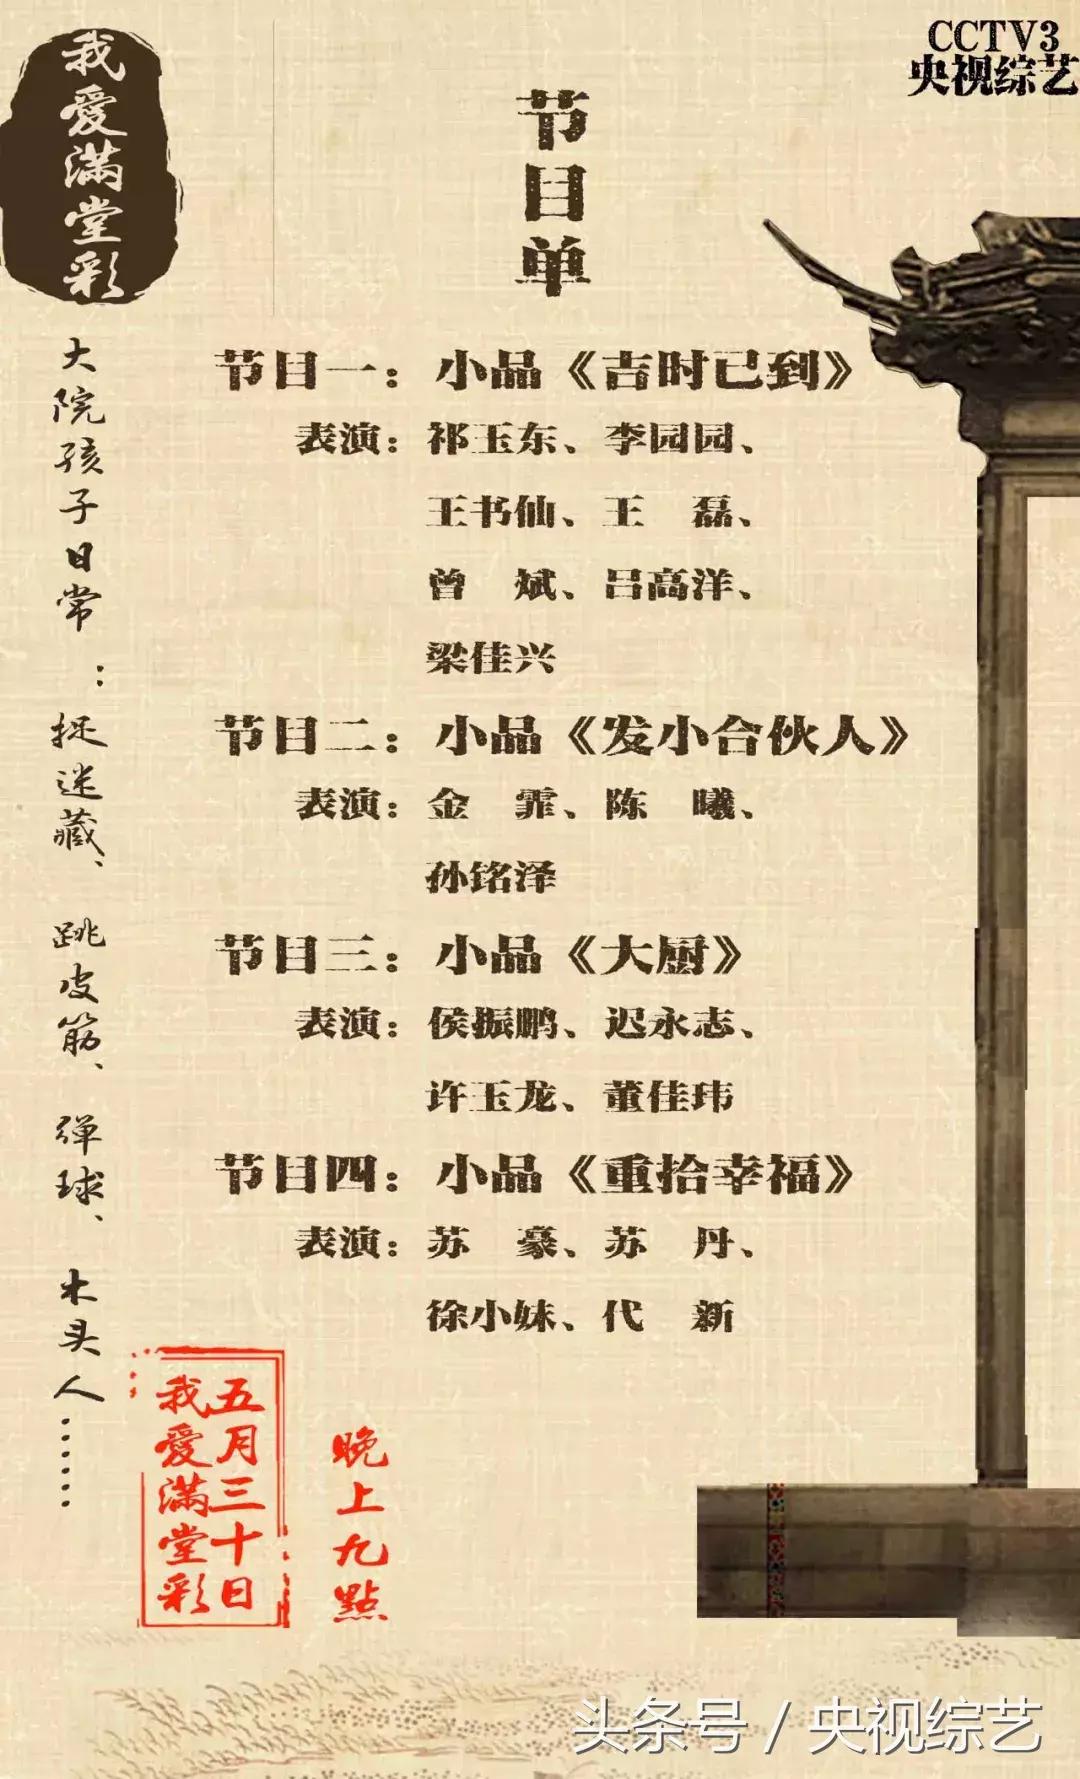 CCTV3
央视综艺
我愛滿堂彩
节目单
大院孩子日常：捉迷藏、跳皮筋、弹球、木头人……
节目一：小品《吉时已到》
表演：祁玉东、李园园、
王书仙、王　磊、
曾　斌、吕高洋、
梁佳兴
节目二：小品《发小合伙人》
表演：金　霏、陈　曦、
孙铭泽
节目三：小品《大厨》
表演：侯振鹏、迟永志、
许玉龙、董佳玮
节目四：小品《重拾幸福》
表演：苏　豪、苏　丹、
徐小妹、代　新
五月三十日
我愛滿堂彩
晚上九點
头条号 / 央视综艺